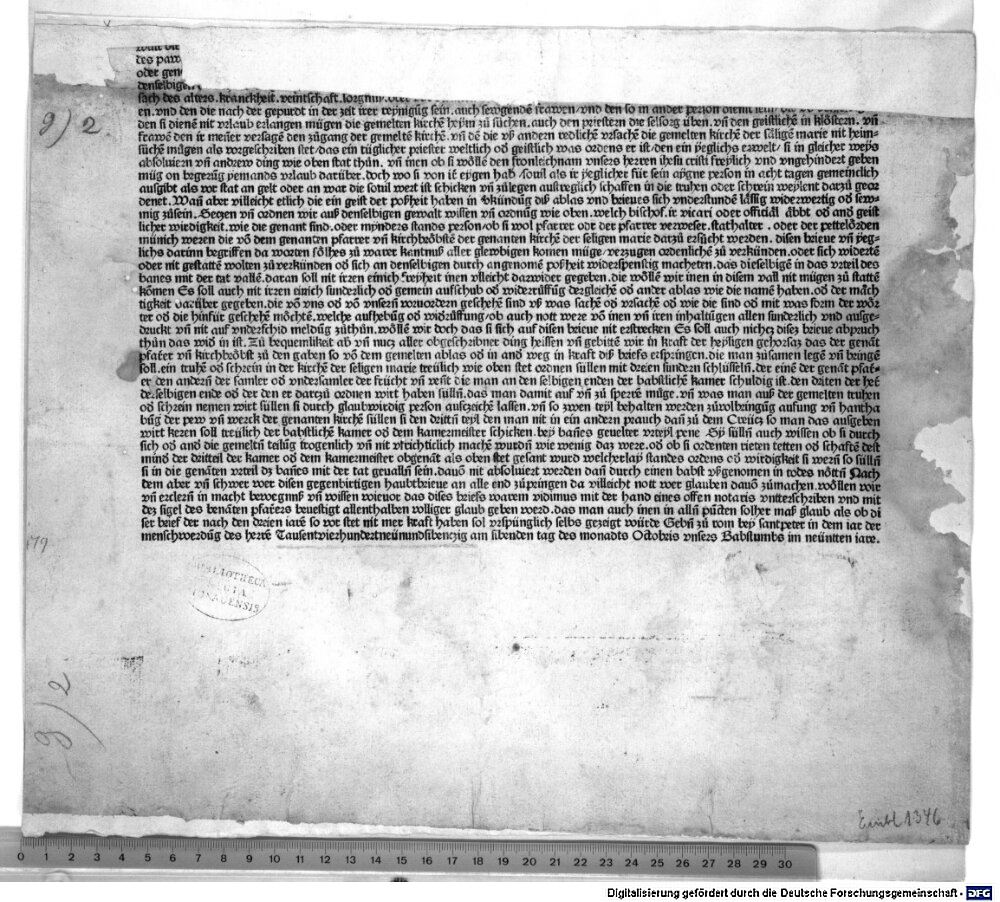 des parr
oder gen
denselbigen
sach des alters. kranckheit. veintschaft. sorgnuß. oder
en. vnd den die nach der gepurdt in der zeit irer reynigūg sein. auch sewgendē frawen / vnd den so in ander person dienst sein
den si dienē nit vrlaub erlangen mūgen die gemelten kirchē heym zů sůchen. auch den priestern die selsorg ůben. vn̄ den geistlichē in klöstern. vn̄
frawē den ir meñer versagē den zůgang der gemeltē kirchē. vn̄ dē die vß andern redlichē vrsachē die gemelten kirchē der sāligē marie nit heim-
sůchē mūgen als vorgeschriben stet / das ein tůglicher priester weltlich oď geistlich was ordens er ist / den ein yeglichs erwelt / si in gleicher weyß
absoluiern vn̄ andrew ding wie oben stat thůn. vn̄ inen ob si wöllē den fronleichnam vnsers herren ihesu cristi freylich vnd vngehindert geben
mūg on begerūg yemands vrlaub darūber. doch wo si von ir̄ eygen hab souil als ir yeglicher fůr sein aygne person in acht tagen gemeinclich
außgibt als vor stat an gelt oder an war die souil wert ist schicken vn̄ zůlegen außtreglich schaffen in die truhen oder schrein weylent darzů geor
denet. Wañ aber villeicht etlich die ein geist der poßheit haben in vkůndūg diß ablas vnd brieues sich vnderstundē lässig widerwertig oď sew-
mig zůsein. Seczen vn̄ ordnen wir auß denselbigen gewalt wissen vn̄ ordnūg wie oben. welch bischof. ir vicari oder official äbbt oď and geist
licher wirdigkeit. wie die genant sind. oder mynders stands person / ob si wol pfarrer oder der pfarrer verweser. stathalter. oder der pettelörden
můnich weren die vō dem genanten pfarrer vn̄ kirchbröbstē der genanten kirchē der seligen marie darzů ersůcht werden. disen brieue vn̄ yeg-
lichs darinn begriffen da worten sölhes zů warer kantnuß aller glewbigen komen mūge / verzugen ordenlichē zů verkůnden. oder sich widertē
oder nit gestattē wolten zůverkůnden oď sich an denselbigen durch angenomē poßheit widerspenstig macheten. das dieselbigē in das vrteil des
banes mit der tat vallē. daran soll nit irren einich freyheit inen villeicht darwider gegeben. die wöllē wir inen in disem vall nit mūgen zů stattē
kōmen Es soll auch nit irren einich sunderlich oď gemein aufschub oď widerrůffūg dergleichē oď ander ablas wie die namē haben. oď der mäch
tigkeit darůber gegeben. die vō vns oď vō vnsern̄ voruordern geschehē sind vß was sachē oď vrsachē oď wie die sind oď mit was form der wör
ter oď die hinfůr geschehē möchtē. welche aufhebūg oď widrůffung / ob auch nott were vō inen vn̄ iren inhaltūgen allen sunderlich vnd außge-
druckt vn̄ nit auf vnderschid meldūg zůthůn. wöllē wir doch das si sich auf disen brieue nit erstrecken Es soll auch nichcz disez brieue abpruch
thůn das wid in ist. Zů bequemlikeit ab vn̄ nucz aller obgeschribner ding heissen vn̄ gebittē wir in kraft der heyligen gehorsaz das der genāt
pfarrer vn̄ kirchbröbst zů den gaben so vō dem gemelten ablas oď in and weg in kraft diß briefs erspringen. die man zůsamen legē vn̄ bringē
soll. ein truhē oď schrein in der kirchē der seligen marie treůlich wie oben stet ordnen sůllen mit dreien sundern schlůsseln̄. der einē der genāt pfar-
er den andern̄ der samler oď vndersamler der frůcht vn̄ rent die man an den selbigen enden der babstlichē kamer schuldig ist. den driten der het
derselbigen ende oď der den er darczů ordnen wirt haben sůllñ. das man damit auf vn̄ zů sperrē mūge. vn̄ was man auß der gemelten truhen
oď schrein nemen wirt sůllen si durch glaubwirdig person aufczeichē lassen. vn̄ so zwen teyl behalten werden zůvolbringūg aufung vn̄ hantha
būg der pew vn̄ werck der genanten kirchē sůllen si den drittñ teyl den man nit in ein andern prauch dañ zů dem Creůcz so man das außgeben
wirt keren soll treůlich der babstlichē kamer oď dem kamermeister schicken. bey banes geuelter vrteyl pene. Sy sůllñ auch wissen ob si durch
sich oď and die gemeltñ taslůg trogenlich vn̄ nit v̄frichtiklich machē wurdñ wie wenig daz were. oď ob si ordenten rieten tetten oď schaftē dest
minď der dritteil der kamer oď dem kamermeister obgenāt als oben stet gesant wurd welcherlay standes ordens oď wirdigkeit si wern̄ so sůllñ
si in die genāten vrteil dz banes mit der tat geuallñ sein. dauō nit absoluierz werden dañ durch einen babst vßgenomen in todes nöttñ Nach
dem aber vn̄ schwer wer disen gegenbirtigen haubtbrieue an alle end zůpringen da villeicht nott wer glauben dauō zůmachen. wöllen wir
vn̄ erclern̄ in macht bewegnuß vn̄ wissen wieuor das dises briefs warem vidimus mit der hand eines offen notaris vntterschriben vnd mit
dez sigel des benāten pfarrers beuestigt allenthalben volliger glaub geben werd. das man auch inen in allñ pūcten solher maß glaub als ob di
ser brief der nach den dreien iarē so vor stet nit mer kraft haben sol vrspůnglich selbs gezeigt wůrde Gebñ zů rom bey sant peter in dem iar der
menschwerdūg des herrē Tausentvierhundertneůnundsibenczig am sibenden tag des monadts Octobris vnsers Babstumbs im neůntten iare.
g) 2.
g) 2
BIBLIOTHECA
REGIA
MONACENSIS
Einbl 1346
0 1 2 3 4 5 6 7 8 9 10 11 12 13 14 15 16 17 18 19 20 21 22 23 24 25 26 27 28 29 30
Digitalisierung gefördert durch die Deutsche Forschungsgemeinschaft - DFG